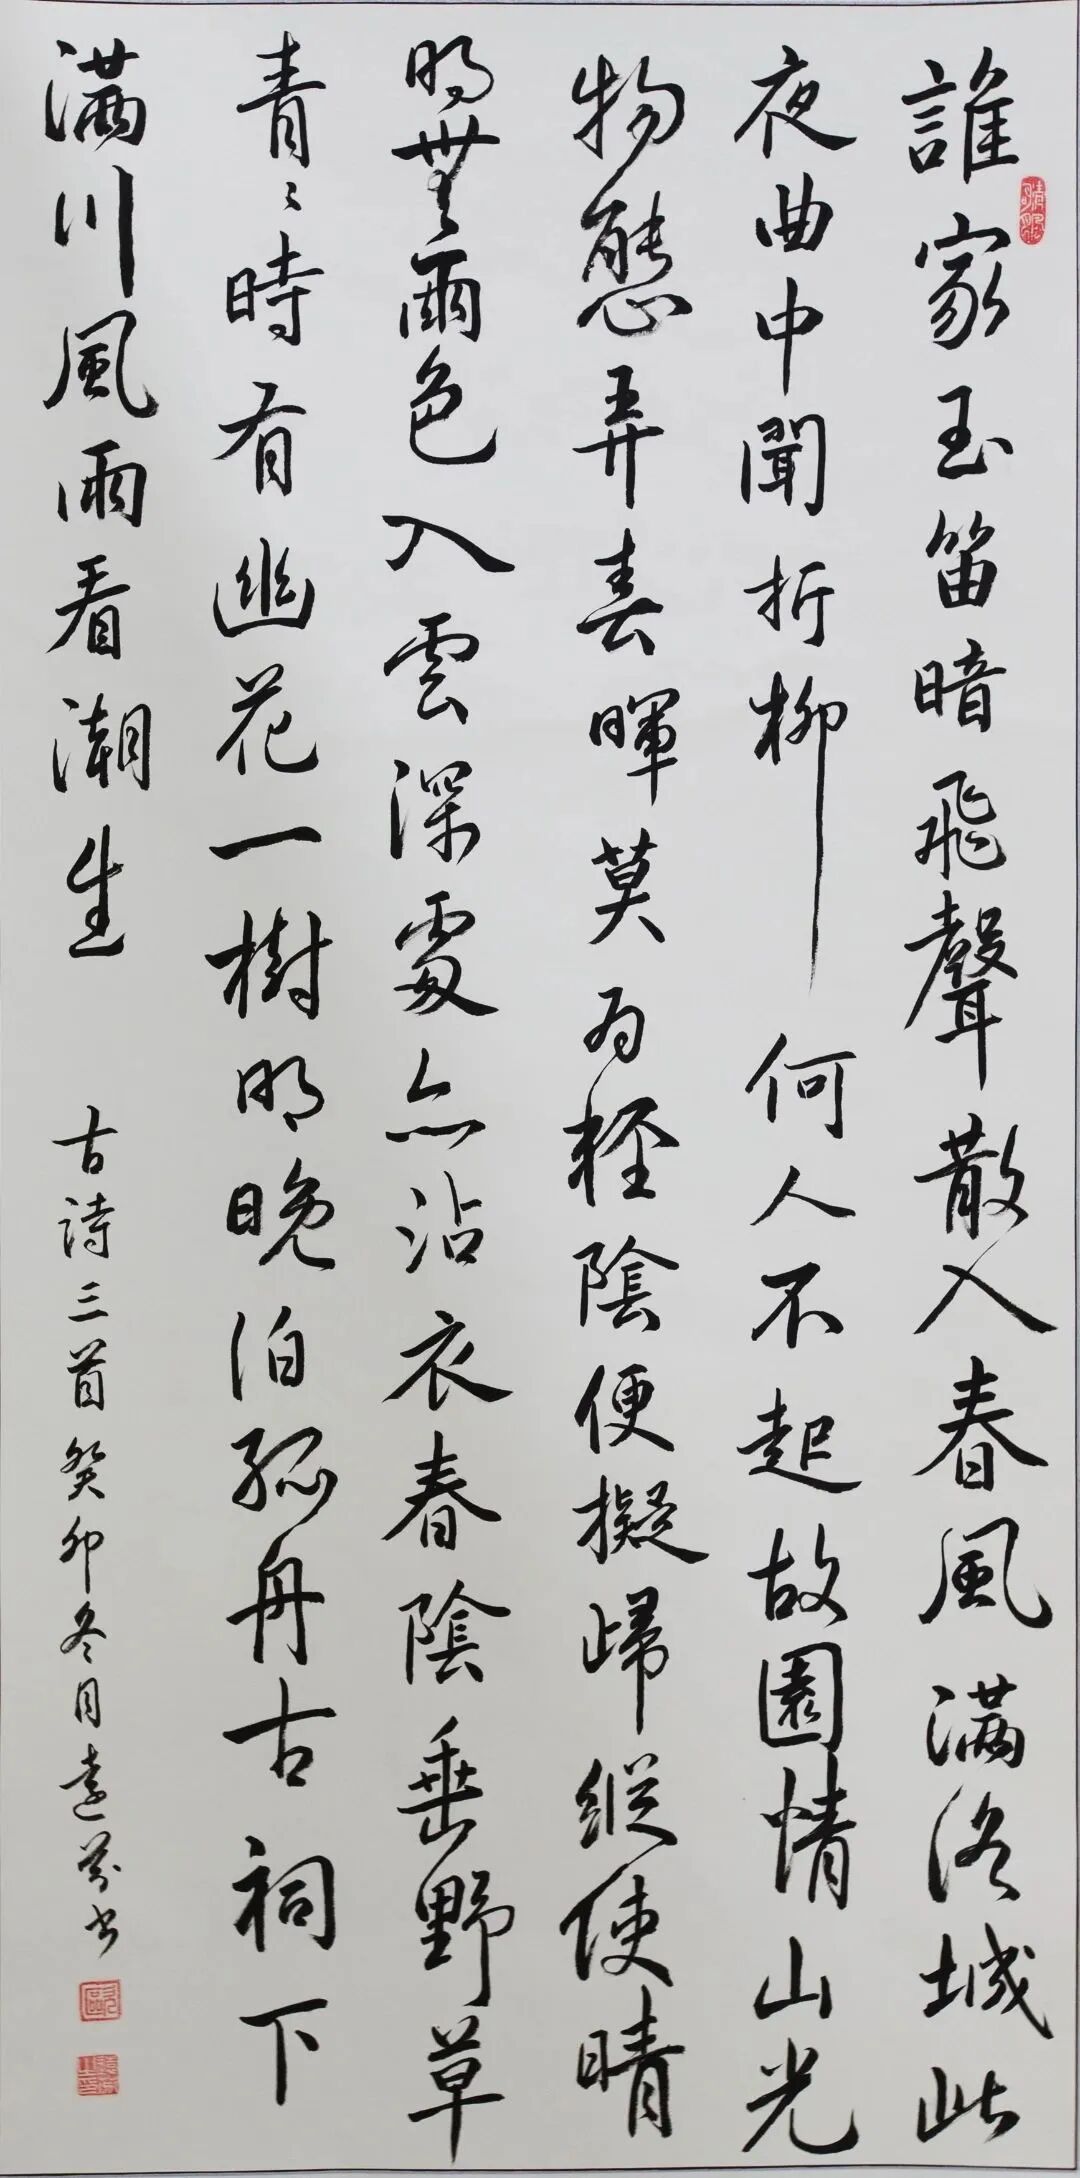 誰家玉笛暗飛聲散入春風滿洛城此
夜曲中聞折柳何人不起故園情山光
物態弄春暉莫為輕陰便擬歸縱使晴
明無雨色入雲深處亦沾衣春陰垂野草
青〻時有幽花一樹明晚泊孤舟古祠下
滿川風雨看潮生
古詩三首癸卯冬月遠芬书